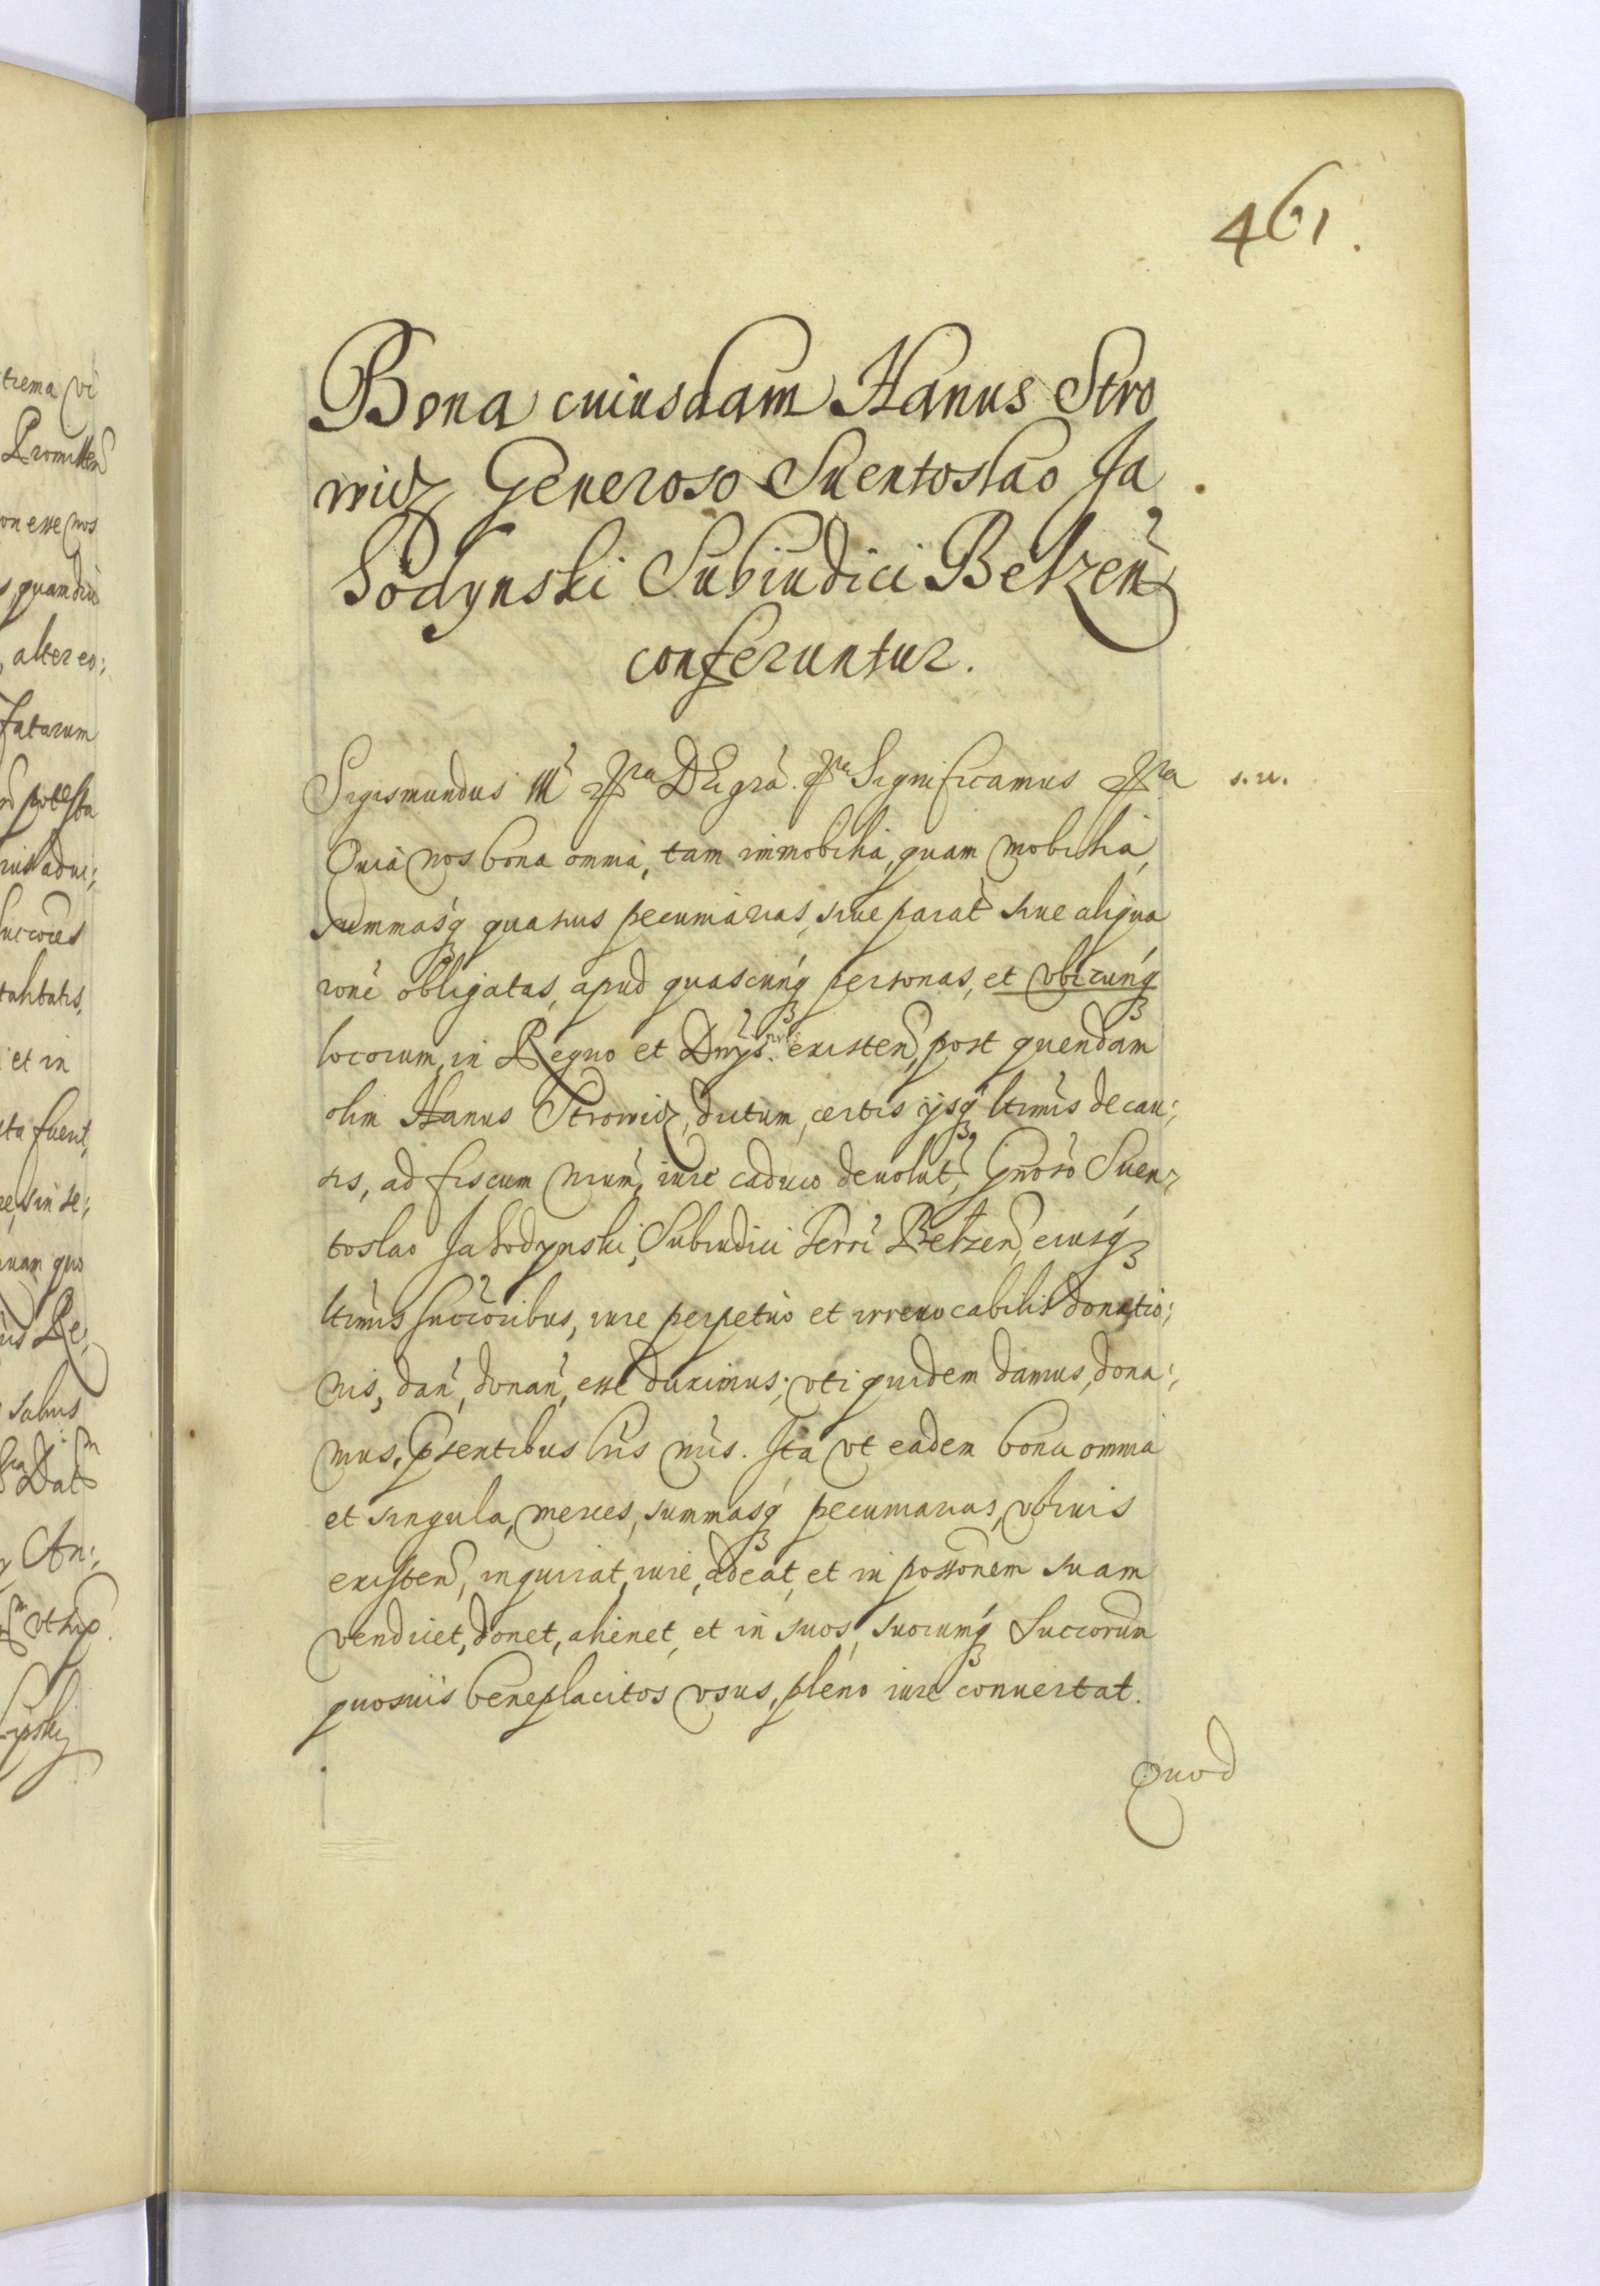 461.
Bona cuiusdam Hanus Stro
wicz Generoso Suentoslao Ja
Sodynski Subiudici Betzeñ
conferuntur.
Sigismundus III DEi grã. Significamus s. u.
Quia nos bona omnia, tam immobilia, quam mobilia,
summasq quasuis pecuniarias, siue parat siue aliqua
rone obligatas, apud quascunq personas, et vbicunq
locorum, in Regno et Dnys. nris existen, post quendam
olim Hanus Strowicz, dictum, certis ijsq ltimis de cau:
sis, ad fiscum nrum, iure caduco deuolut, Gnoso Suen-
toslao Ja Sodynski, Subiudici Terrae Betzen, eiusq
ltimis succoribus, iure perpetuo et irreuocabilis donatio:
nis, dan, donan, esse duximus; vti quidem damus, dona:
mus, pntibus lris nris. Ita vt eadem bona omnia
et singula, merces, summasq pecuniarias, vbiuis
existen, inquirat, iure, adeat, et in possonem suam
vendicet, donet, alienet, et in suos, suorumq Succorum
quosuis beneplacitos vsus, pleno iure conuertat.
Quod
trema vi
Promitten
on esse nos
quamdiu
, alter eo:
fatarum
et in
Re:
salus
Dat
An: